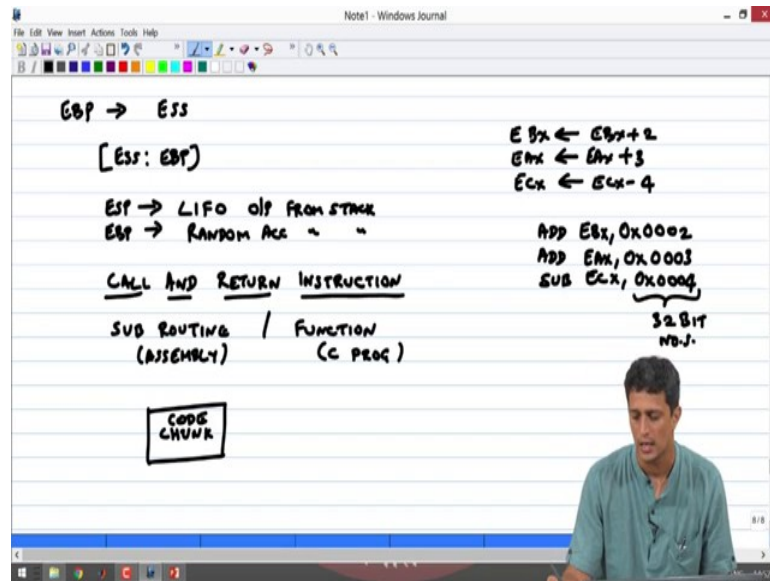 Note1 - Windows Journal
File Edit View Insert Actions Tools Help
B I
EBP → ESS
[ESS: EBP]
ESP → LIFO O/P FROM STACK
EBP → RANDOM ACC " "
CALL AND RETURN INSTRUCTION
SUB ROUTING / FUNCTION
(ASSEMBLY) (C PROG)
CODE
CHUNK
EBX ← EBX+2
EAX ← EAX+3
ECX ← ECX-4
ADD EBX, 0x0002
ADD EAX, 0x0003
SUB ECX, 0x0004
32 BIT
NO.S.
8/8